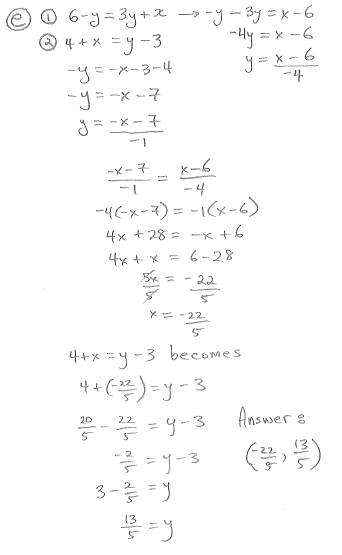 ⓔ ① 6-y=3y+x → -y-3y=x-6
-4y=x-6
y=x-6/-4
② 4+x=y-3
-y=-x-3-4
-y=-x-7
y=-x-7/-1
-x-7/-1 = x-6/-4
-4(-x-7)=-1(x-6)
4x+28=-x+6
4x+x=6-28
5x/5=-22/5
x=-22/5
4+x=y-3 becomes
4+(-22/5)=y-3
20/5-22/5=y-3
-2/5=y-3
3-2/5=y
13/5=y
Answer:
(-22/5, 13/5)